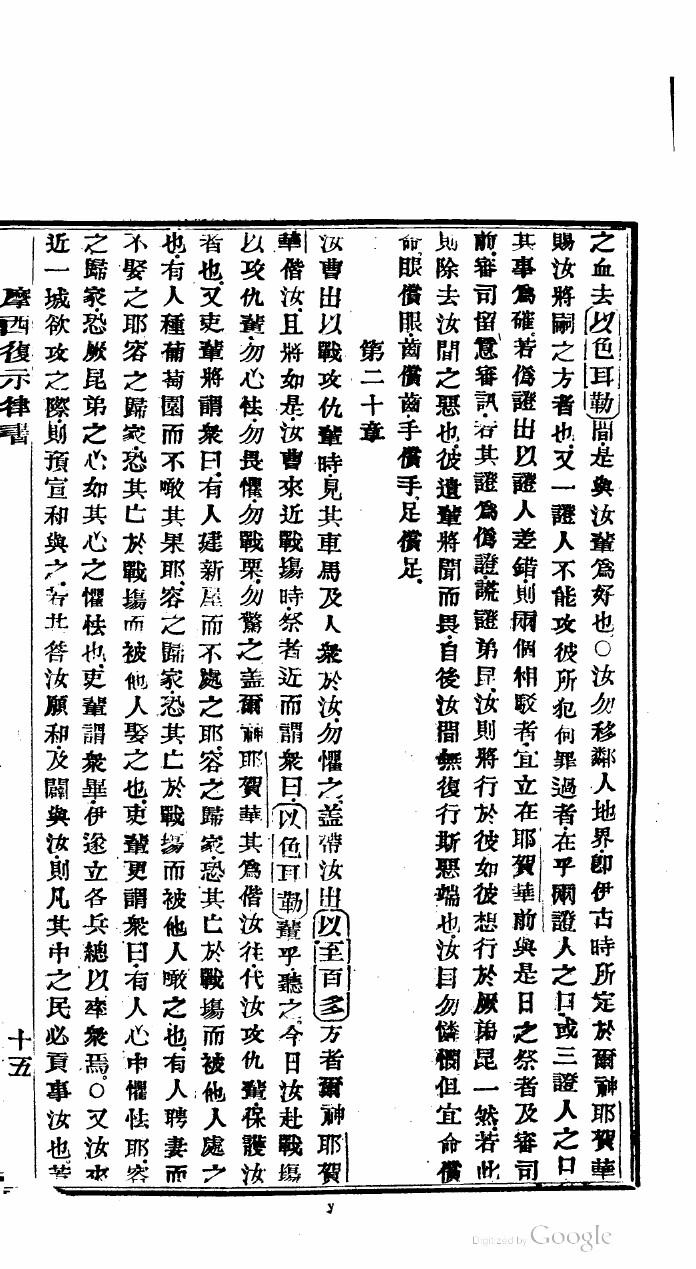 之血去以色耳勒間是與汝輩為好也○汝勿移鄰人地界卽伊古時所定於爾神耶賀華
賜汝將嗣之方者也又一證人不能攻彼所犯何罪過者在乎兩證人之口或三證人之口
其事為確若偽證出以證人差錯則兩個相駁者宜立在耶賀華前與是日之祭者及審司
前審司留意審訊若其證為偽證謊證弟昆汝則將行於彼如彼想行於厥弟昆一然若此
則除去汝間之惡也彼遺輩將聞而畏自後汝間無復行斯惡端也汝目勿憐憫但宜命償
命眼償眼齒償齒手償手足償足
第二十章
汝曹出以戰攻仇輩時見其車馬及人衆於汝勿懼之蓋帶汝出以至百多方者爾神耶賀
華偕汝且將如是汝曹來近戰場時祭者近而謂衆曰以色耳勒輩乎聽之今日汝赴戰場
以攻仇輩勿心怯勿畏懼勿戰栗勿驚之蓋爾神耶賀華其為偕汝往代汝攻仇輩保護汝
者也又吏輩將謂衆曰有人建新屋而不處之耶容之歸家恐其亡於戰場而被他人處之
也有人種葡萄園而不噉其果耶容之歸家恐其亡於戰場而被他人噉之也有人聘妻而
不娶之耶容之歸家恐其亡於戰場而被他人娶之也吏輩更謂衆曰有人心中懼怯耶容
之歸家恐厥昆弟之心如其心之懼怯也吏輩謂衆畢伊遂立各兵總以率衆焉○又汝來
近一城欲攻之際則預宣和與之若其答汝願和及闢與汝則凡其中之民必貢事汝也若
摩西復示律書
十五
y
Digitized by Google